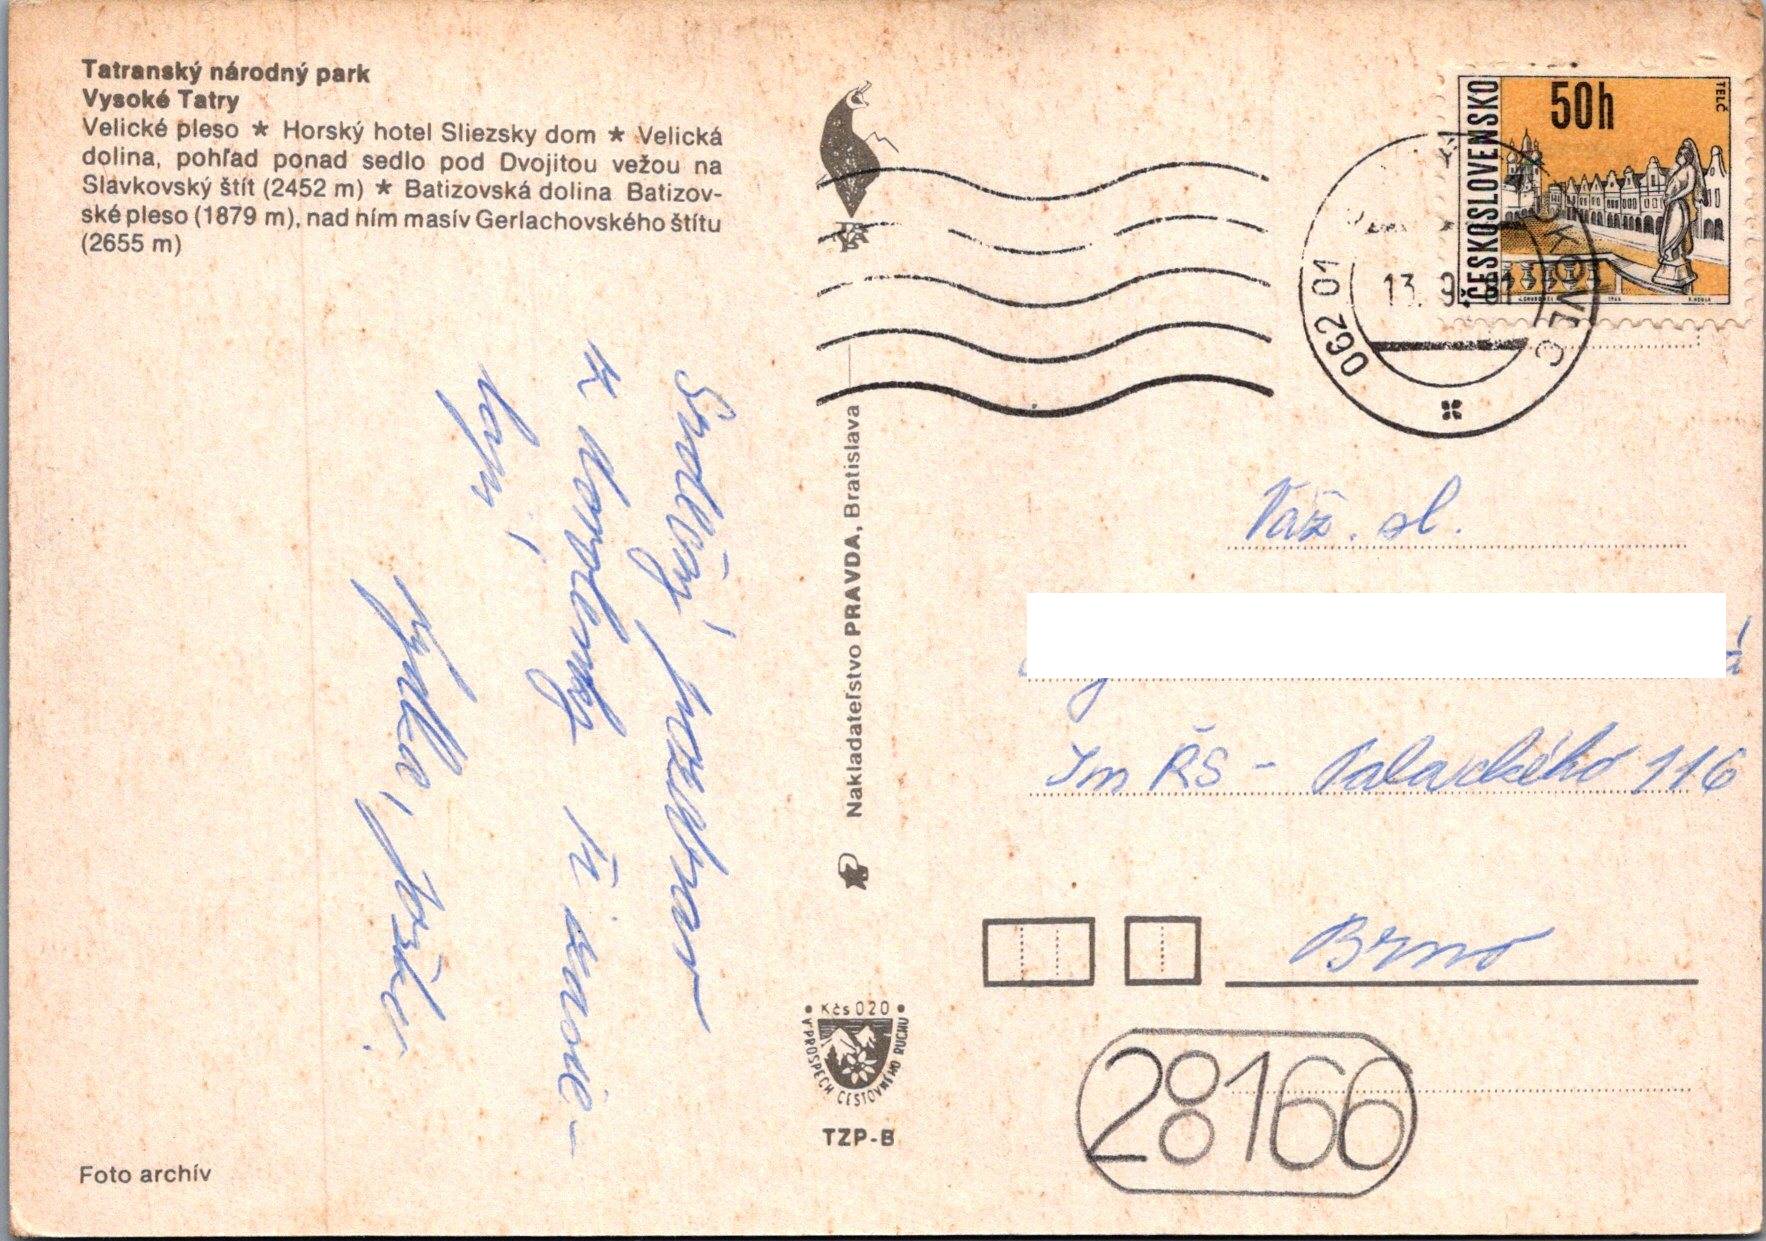 Tatranský národný park
Vysoké Tatry
Velické pleso ★ Horský hotel Sliezsky dom ★ Velická
dolina, pohľad ponad sedlo pod Dvojitou vežou na
Slavkovský štít (2452 m) ★ Batizovská dolina Batizov-
ské pleso (1879 m), nad ním masív Gerlachovského štítu
(2655 m)
Srdečný pozdrav
k
Foto archív
Nakladateľstvo PRAVDA, Bratislava
• Kčs 020 •
V PROSPECH CESTOVNÉHO RUCHU
TZP-B
ČESKOSLOVENSKO
50h
TELČ
062 01
13. 9.
Váž. sl.
Im ŘS - Palackého 116
Brno
28166